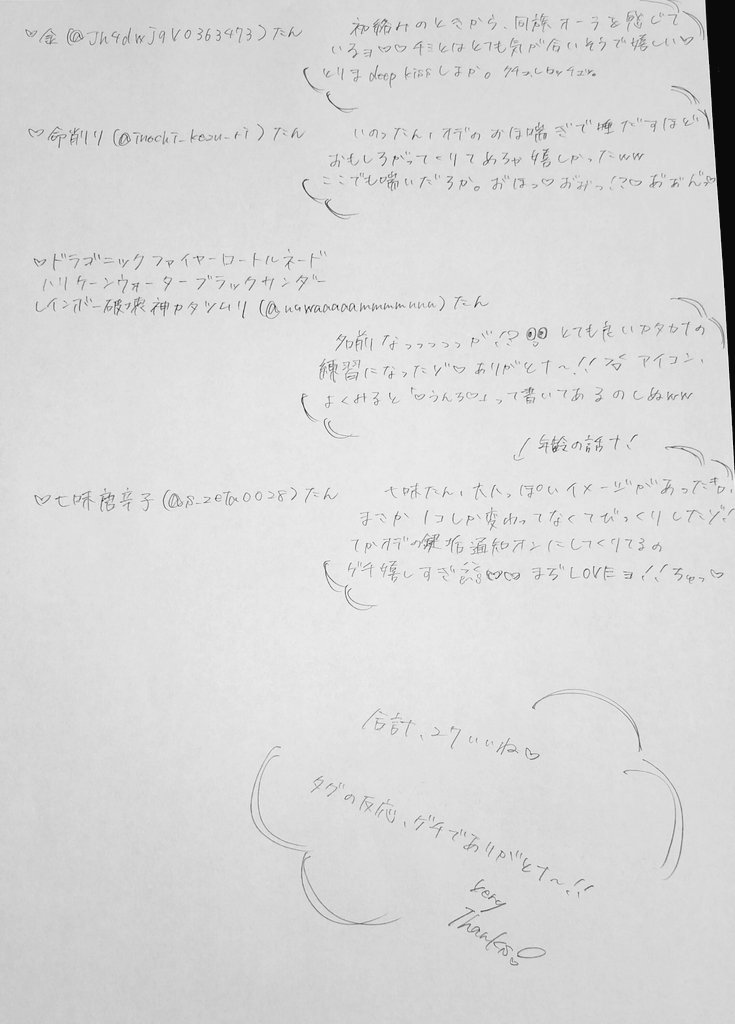 ♡金(@Jh4dwj9V0363473)たん
初絡みのときから、同族オーラを感じて
いるョ♡♡チョとはとても気が合いそうで嬉しい♡
とりま deep kiss しよか。
♡命削り(@inochi_kezu_ri)たん
いのったん、オデのおほ喘ぎで唾だすほど
おもしろがってくりてめちゃ嬉しかったww
ここでも喘いだろか。おほっ♡おみっ!?♡おおん♡
♡ドラゴニックファイヤーロートルネード
ハリケーンウォーターブラックサンダー
レインボー破壊神カタツムリ(@uuwaaaaammmmuuu)たん
名前なっっっっっが!? とても良いカタカナの
練習になったゾ♡ありがとナ〜!! アイコン、
よくみると「♡うんち♡」って書いてあるのしぬww
↓年齢の話ナ!
♡七味唐辛子(@s_zeta0028)たん
七味たん、大人っぽいイメージがあったから、
まさか1コしか変わってなくてびっくりしたゾ!
てかオデの鍵垢通知オンにしてくりてるの
ゲチ嬉しすぎ♡♡ まぢLOVEョ!!ちゅっ♡
合計、27いいね♡
タグの反応、ゲチでありがとナ〜!!
very
Thanks!